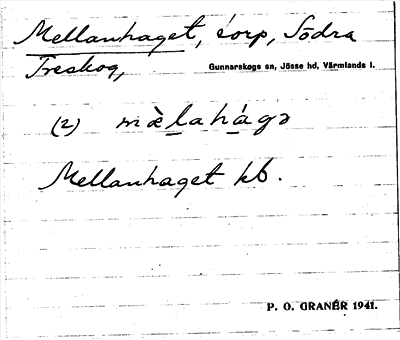 Mellanhaget, torp, Södra
Treskog, Gunnarskogs sn, Jösse hd, Värmlands l.
(2) mæ̀lahágə
Mellanhaget kb.
P. O. GRANÉR 1941.